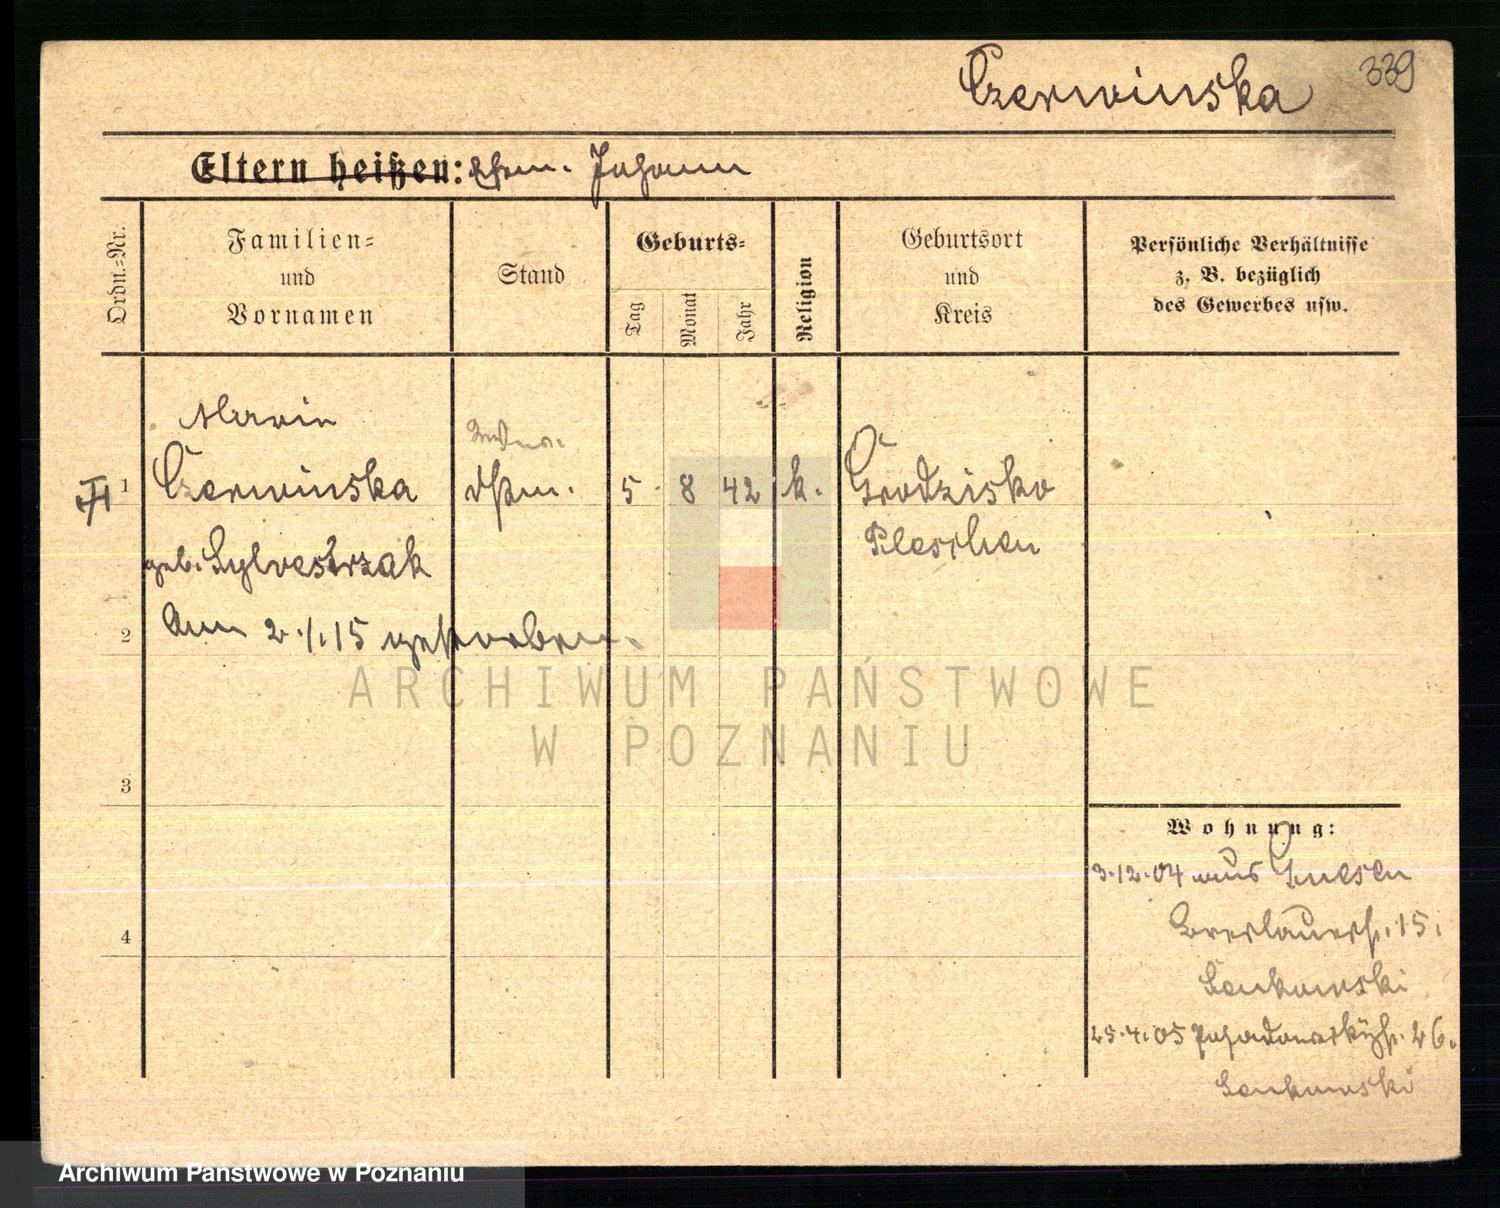 Czerwinska 339
Eltern heißen: Ehem. Johann
Ordn.-Nr.
Familien- und Vornamen
Stand
Geburts-
Tag
Monat
Jahr
Religion
Geburtsort und Kreis
Persönliche Verhältnisse z. B. bezüglich des Gewerbes usw.
Maria
1 Czerwinska 5. 8 42 k. Grodzisko
geb. Sylvestrzak Pleschen
2 Am 2.1.15 gestorben.
3
4
Wohnung:
3.12.04 aus Gnesen
Breslauerstr. 15.
Lenkowski
25.4.05 26.
Lenkowski
ARCHIWUM PAŃSTWOWE
W POZNANIU
Archiwum Państwowe w Poznaniu